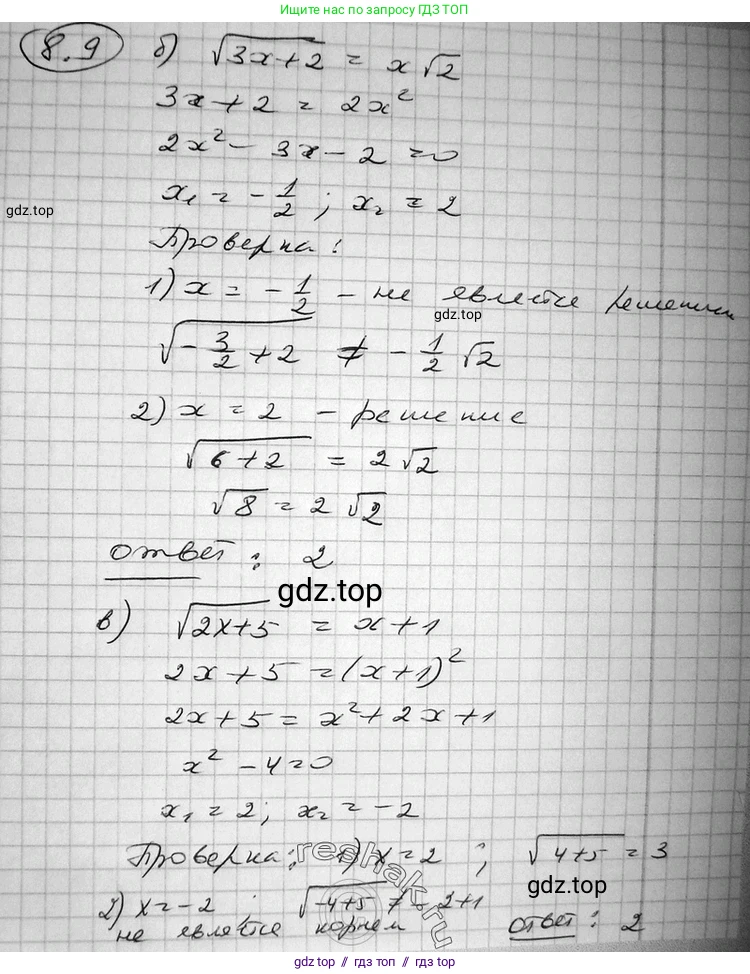 Ищите ответы по запросу ГДЗ ТОП
8.9 б) √(3x+2) = x√2
3x+2 = 2x²
2x² - 3x - 2 = 0
x₁ = -1/2 ; x₂ = 2
gdz.top
Проверка:
1) x = -1/2 - не является решением
gdz.top
√(-3/2 + 2) ≠ -1/2 √2
2) x = 2 - решение
√(6+2) = 2√2
√8 = 2√2
ответ: 2
gdz.top
в) √(2x+5) = x+1
2x+5 = (x+1)²
2x+5 = x²+2x+1
x² - 4 = 0
x₁ = 2; x₂ = -2
Проверка: 1) x = 2 ; √(4+5) = 3
reshak.ru
gdz.top
2) x = -2 ; √(-4+5) ≠ -2+1
не является корнем ответ: 2
gdz.top // гдз.топ // gdz.top